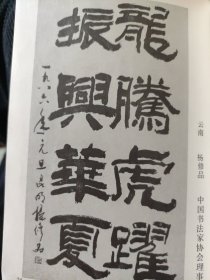 龍騰虎躍
振興華夏
一九八六年元旦昆明楊修品
云南　杨修品　中国书法家协会理事